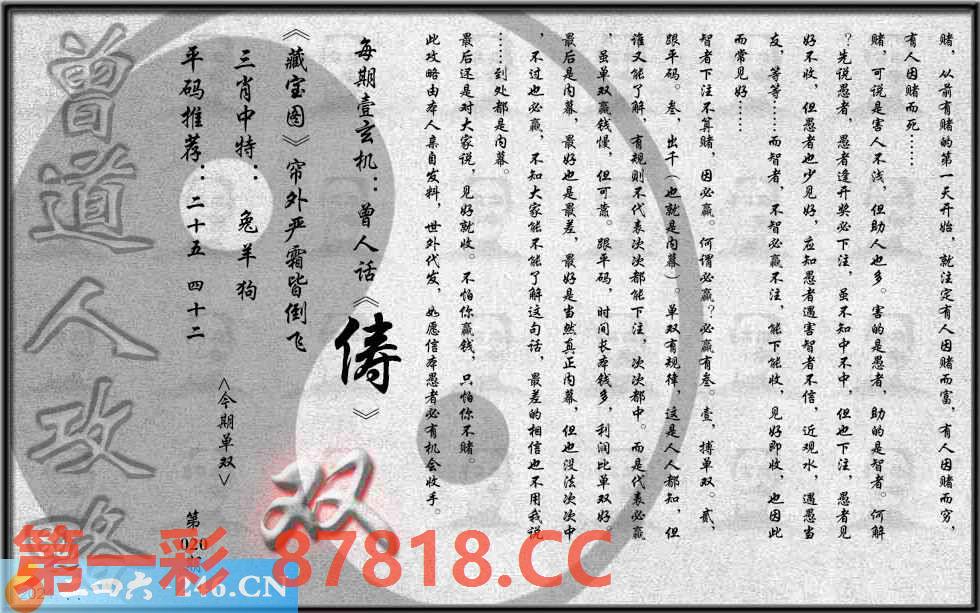 赌，从前有赌的第一天开始，就注定有人因赌而富，有人因赌而穷，
有人因赌而死……
赌，可说是害人不浅，但助人也多。害的是愚者，助的是智者。何解
？先说愚者，愚者逢开奖必下注，虽不知中不中，但也下注，愚者见
好不收，但愚者也少见好，应知愚者遇害智者不信，近观水，遇愚当
友，等等……而智者，不智必赢不注，能下能收，见好即收，也因此
而常见好……
智者下注不算赌，因必赢。何谓必赢？必赢有叁。壹，搏单双。贰，
跟平码。叁，出千（也就是内幕）。单双有规律，这是人人都知，但
谁又能了解，有规则不代表次次都能下注，次次都中。而是代表必赢
，虽单双赢钱慢，但可靠。跟平码，时间长本钱多，利润比单双好。
最后是内幕，最好也是最差，最好是当然真正内幕，但也没法次次中
，不过也必赢，不知大家能不能了解这句话，最差的相信也不用我说
……到处都是内幕。
最后还是对大家说，见好就收。不怕你赢钱，只怕你不赌。
此攻略由本人亲自发料，世外代发，如愿信本愚者必有机会收手。
每期壹玄机：曾人话《俦》
《藏宝图》帘外严霜皆倒飞
三肖中特：兔羊狗
平码推荐：二十五 四十二
<今期单双>
双
第
020
期
曾道人攻略
第一彩 87818.CC
二四六 246.CN